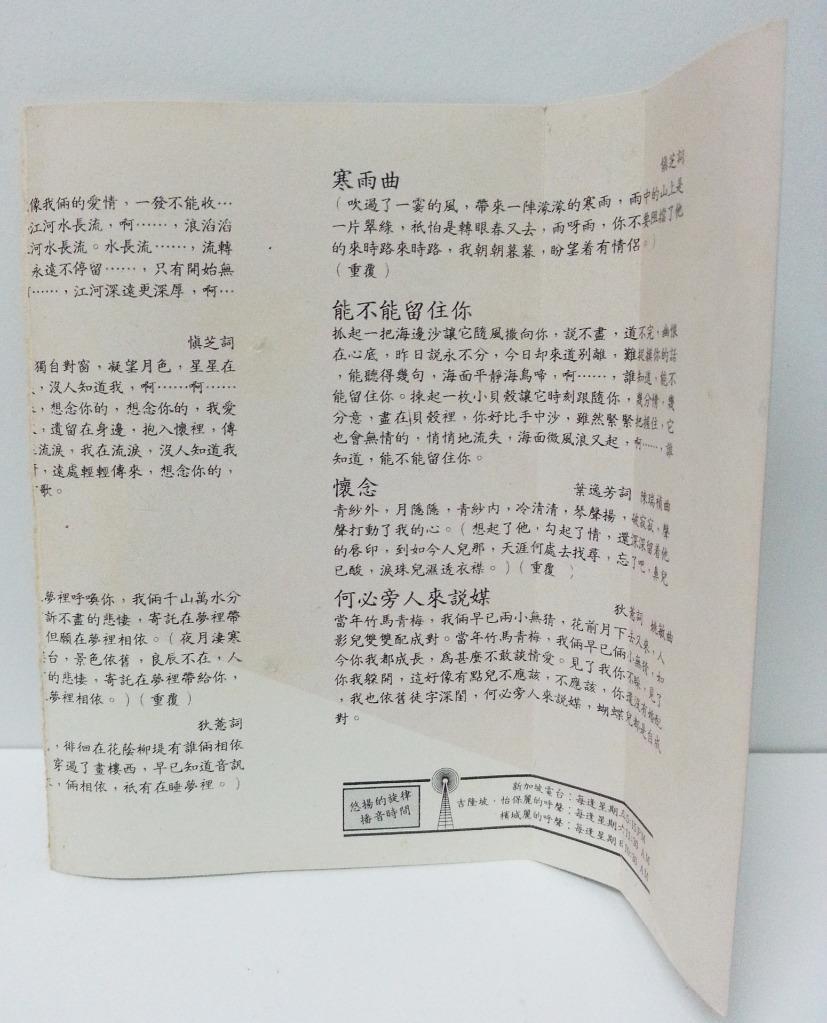 像我倆的愛情，一發不能收…
江河水長流，啊……，浪滔滔
河水長流。水長流……，流轉
永遠不停留……，只有開始無
……，江河深遠更深厚，啊…
慎芝詞
獨自對窗，凝望月色，星星在
，沒人知道我，啊……啊……
，想念你的，想念你的，我愛
，遺留在身邊，抱入懷裡，傳
流淚，我在流淚，沒人知道我
，遠處輕輕傳來，想念你的，
歌。
夢裡呼喚你，我倆千山萬水分
訴不盡的悲悽，寄託在夢裡帶
但願在夢裡相依。（夜月淒寒
台，景色依舊，良辰不在，人
的悲悽，寄託在夢裡帶給你，
夢裡相依。）（重覆）
狄薏詞
，徘徊在花蔭柳堤有誰倆相依
穿過了畫樓西，早已知道音訊
，倆相依，祇有在睡夢裡。）
寒雨曲
慎芝詞
（吹過了一霎的風，帶來一陣濛濛的寒雨，雨中的山上是
一片翠綠，祇怕是轉眼春又去，雨呀雨，你不要阻擋了他
的來時路來時路，我朝朝暮暮，盼望着有情侶。）
（重覆）
能不能留住你
抓起一把海邊沙讓它隨風撒向你，說不盡，道不完，幽懷
在心底，昨日説永不分，今日却來道别離，難捉摸你的話
，能聽得幾句，海面平靜海鳥啼，啊……，誰知道，能不
能留住你。揀起一枚小貝殼讓它時刻跟隨你，幾分情，幾
分意，盡在貝殼裡，你好比手中沙，雖然緊緊把握住，它
也會無情的，悄悄地流失，海面微風浪又起，啊……，誰
知道，能不能留住你。
懷念
葉逸芳詞 陳瑞禎曲
青紗外，月隱隱，青紗內，冷清清，琴聲揚，破寂寂，聲
聲打動了我的心。（想起了他，勾起了情，還深深留着他
的唇印，到如今人兒那，天涯何處去找尋，忘了吧，鼻兒
已酸，淚珠兒濕透衣襟。）（重覆 ）
何必旁人來説媒
狄薏詞 姚敏曲
當年竹馬青梅，我倆早已兩小無猜，花前月下去又來，人
影兒雙雙配成對。當年竹馬青梅，我倆早已倆小無猜，如
今你我都成長，為甚麼不敢談情愛。見了我你不睬，見了
你我躲開，這好像有點兒不應該，不應該，你還沒有婚配
，我也依舊徒字深閨，何必旁人來説媒，蝴蝶兒都是自成
對。
悠揚的旋律
播音時間
新加坡電台：每逢星期五5:15PM
吉隆坡，怡保麗的呼聲：每逢星期六11:30 AM
檳城麗的呼聲：每逢星期日10:30 AM